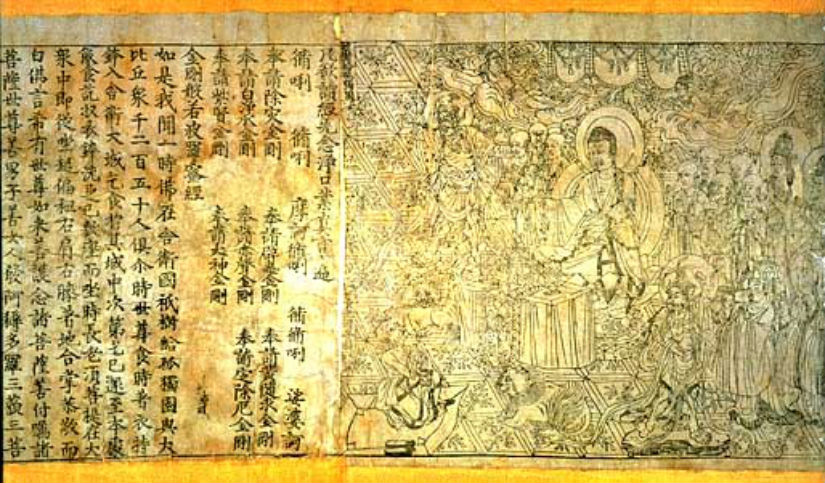 凡欲讀經先念淨口業真言遍
脩唎 脩唎 摩訶脩唎 脩脩唎 娑婆訶
奉請除災金剛 奉請辟毒金剛 奉請黃隨求金剛
奉請白淨水金剛 奉請赤聲金剛 奉請定除厄金剛
奉請紫賢金剛 奉請大神金剛
金剛般若波羅蜜經
如是我聞一時佛在舍衛國祇樹給孤獨園與大
比丘衆千二百五十人俱尒時世尊食時著衣持
鉢入舍衛大城乞食於其城中次第乞已還至本處
飯食訖收衣鉢洗足已敷座而坐時長老須菩提在大
衆中即從座起偏袒右肩右膝著地合掌恭敬而
白佛言希有世尊如來善護念諸菩薩善付囑諸
菩薩世尊善男子善女人發阿耨多羅三藐三菩